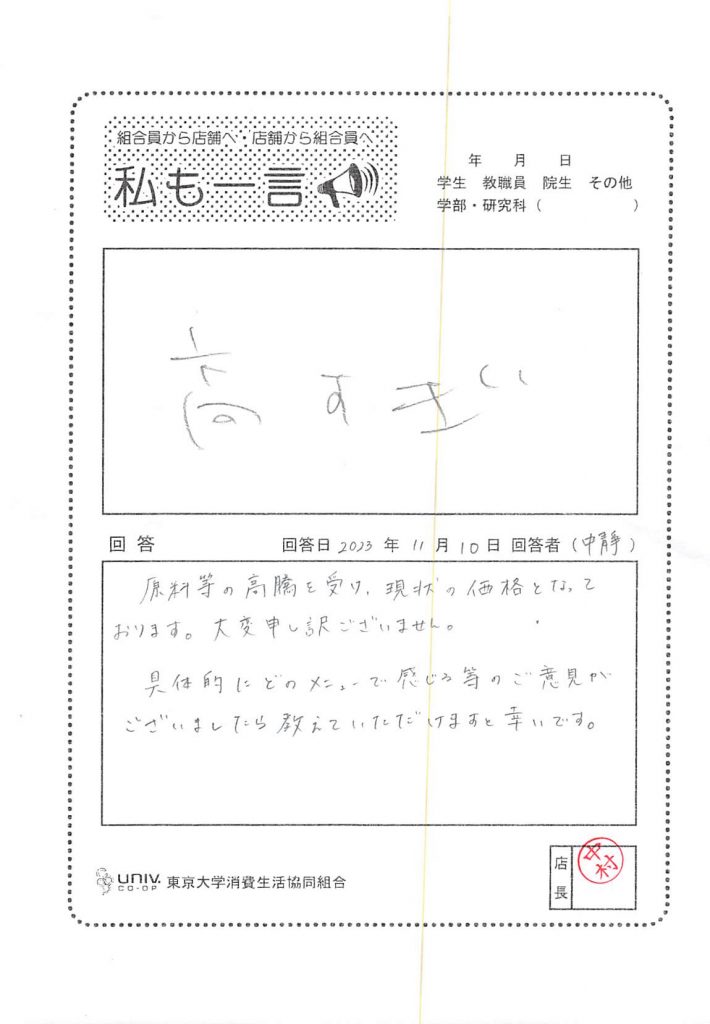 組合員から店舗へ・店舗から組合員へ
私も一言
年 月 日
学生 教職員 院生 その他
学部・研究科( )
高すぎい
回答 回答日 2023 年 11 月 10 日 回答者 (中静)
原料等の高騰を受け、現状の価格となって
おります。大変申し訳ございません。
具体的にどのメニューで感じる等のご意見が
ございましたら教えていただけますと幸いです。
UNIV.
CO-OP
東京大学消費生活協同組合
店長
中村